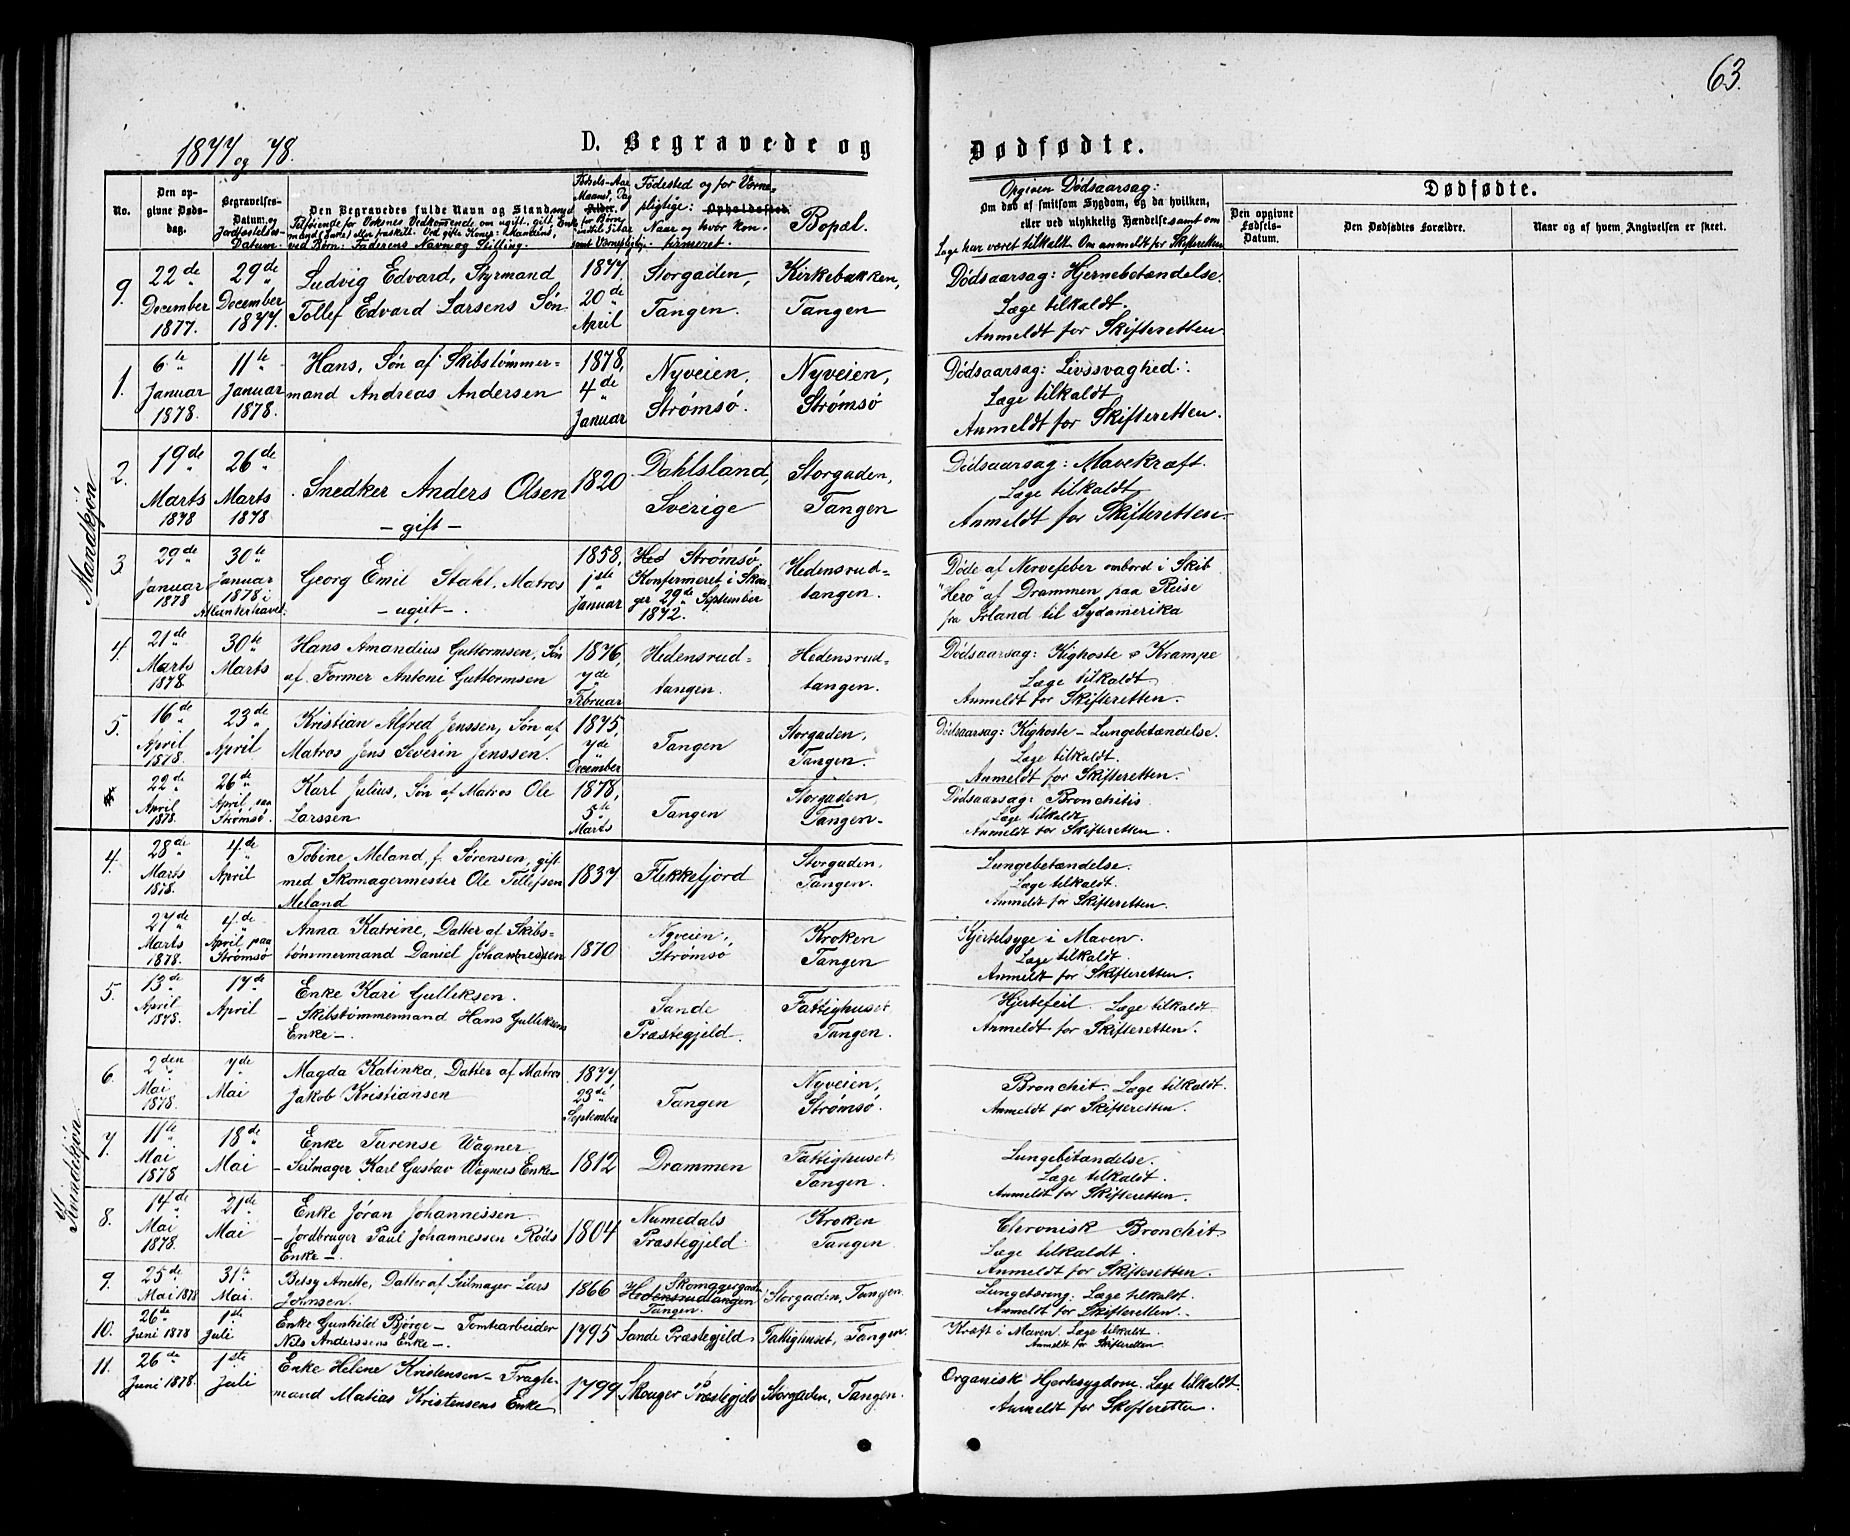 63.
1877 og 78.
D. Begravede og
Dødfødte.
No.
Den opgivne Dødsdag.
Begravelses-Datum, og Jordfæstelses-Datum.
Den Begravedes fulde Navn og Stand
ved Børn: Faderens Navn og Stilling.
Fødested og for Værnepligtige: Opholdssted. Naar og hvor konfirmeret.
Bopæl.
Opgiven Dødsaarsag:
Om død af smitsom Sygdom, og da hvilken,
eller ved ulykkelig Hændelse samt om
Læge har været tilkaldt. Om anmeldt for Skifteretten
Dødfødte.
Den opgivne Fødsels-Datum.
Den Dødfødtes Forældre.
Naar og af hvem Angivelsen er skeet.
Mandkjøn
9. 22de December 1877. 29de December 1877. Ludvig Edvard, Styrmand Tollef Edvard Larsens Søn 1877. 20de April Storgaden, Tangen. Kirkebakken, Tangen Dødsaarsag: Hjernebetændelse. Læge tilkaldt. Anmeldt for Skifteretten
1. 6te Januar 1878. 11te Januar 1878. Hans, Søn af Skibstømmermand Andreas Andersen 1878, 4de Januar Nyveien, Strømsø. Nyveien, Strømsø Dødsaarsag: Livssvaghed. Læge tilkaldt Anmeldt for Skifteretten.
2. 19de Marts 1878 26de Marts 1878. Snedker Anders Olsen - gift - 1820 Dahlsland, Sverige Storgaden, Tangen Dødsaarsag: Mavekræft. Læge tilkaldt Anmeldt for Skifteretten
3. 29de Januar 1878 30te Januar 1878 i Atlanterhavet. Georg Emil Stahl, Matros - ugift -. 1858, 1ste Januar Hed Strømsø Konfermeret i Skouger 29de September 1872. Hedensrudtangen. Døde af Nervefeber ombord i Skib "Hero" af Drammen paa Reise fra Irland til Sydamerika
4. 21de Marts 1878. 30te Marts Hans Amandius Guttormsen, Søn af Former Antoni Guttormsen 1876, 7de Februar Hedensrudtangen. Hedensrudtangen. Dødsaarsag: Kighoste & Krampe Læge tilkaldt. Anmeldt for Skifteretten.
5. 16de April 1878. 23de April Kristian Alfred Jenssen, Søn af Matros Jens Severin Jenssen. 1875, 7de December Tangen Storgaden, Tangen. Dødsaarsag: Kighoste - Lungebetændelse. Læge tilkaldt. Anmeldt for Skifteretten.
22de April 1878. 26de April, paa Strømsø. Karl Julius, Søn af Matros Ole Larssen 1878, 5te Marts Tangen Storgaden, Tangen. Dødsaarsag: Bronchitis. Læge tilkaldt Anmeldt for Skifteretten.
Kvindekjøn.
4. 28de Marts 1878. 4de April Tobine Meland, f. Sørensen, gift med Skomagermester Ole Tellefsen Meland 1837 Flekkefjord Storgaden, Tangen. Lungebetændelse. Læge tilkaldt. Anmeldt for Skifteretten.
27de Marts 1878. 4de April, paa Strømsø Anna Katrine, Datter af Skibstømmermand Daniel Johan(nes)sen 1870 Nyveien, Strømsø Kroken Tangen Kjertelsyge i Maven. Læge tilkaldt. Anmeldt for Skifteretten.
5. 13de April 1878. 17de April Enke Kari Gulliksen. - Skibstømmermand Hans Gulliksens Enke -. Sande Præstegjeld. Fattighuset Tangen. Hjertefeil. Læge tilkaldt. Anmeldt for Skifteretten.
6. 2den Mai 1878. 7de Mai Magda Katinka, Datter af Matros Jakob Kristiansen 1877 23de September Tangen Nyveien, Strømsø. Bronchit. Læge tilkaldt. Anmeldt for Skifteretten.
7. 11te Mai 1878 18de Mai Enke Turense Wagner - Seilmager Karl Gustav Wagners Enke - 1812 Drammen Fattighuset Tangen. Lungebetændelse. Læge tilkaldt. Anmeldt for Skifteretten.
8. 14de Mai 1878. 21de Mai Enke Jøran Johannessen. - Jordbruger Paul Johannessen Røds Enke -. 1804 Numedals Præstegjeld. Kroken Tangen. Chronisk Bronchit Læge tilkaldt. Anmeldt for Skifteretten.
9. 25de Mai 1878 31te Mai. Betsy Anette, Datter af Seilmager Lars Johnsen. 1866 Hedensrudtangen Skomagergaden Tangen. Storgaden, Tangen. Læge tilkaldt. Anmeldt for Skifteretten.
10. 26de Juni 1878 1ste Juli Enke Gunhild Bjørge - Tomtearbeider Nils Anderssens Enke -. 1795 Sande Præstegjeld Fattighuset, Tangen. Kræft i Maven. Læge tilkaldt. Anmeldt for Skifteretten
11. 26de Juni 1878. 1ste Juli Enke Helene Kristensen - Fragtemand Matias Kristensens Enke 1799 Skouger Præstegjeld Storgaden, Tangen. Organisk Hjertesygdom. Læge tilkaldt. Anmeldt for Skifteretten.